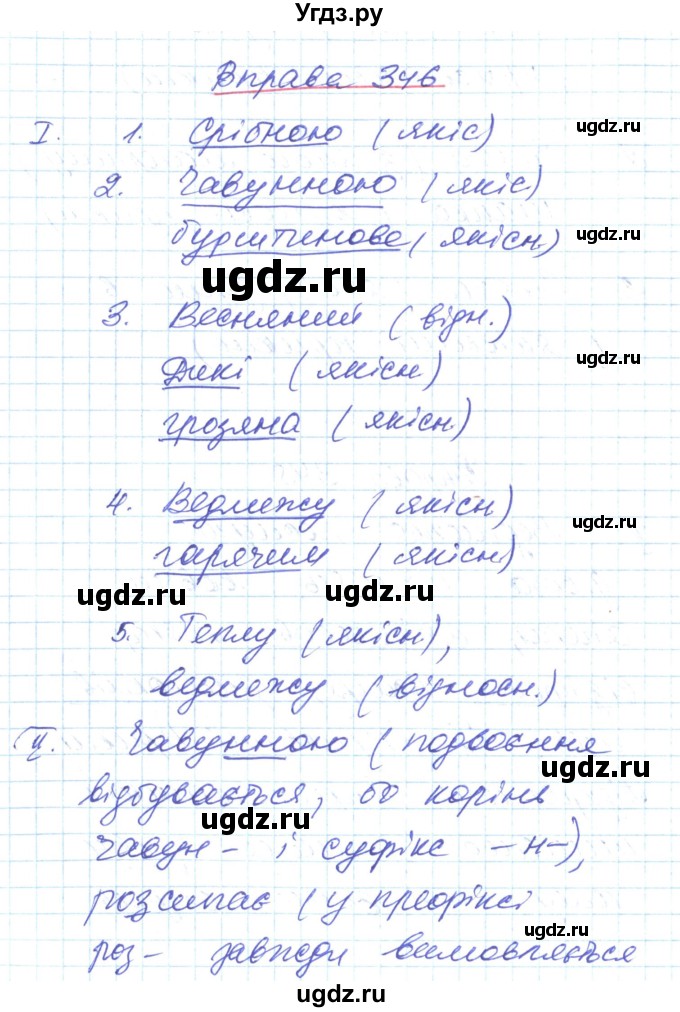 Угдз.ру
Вправа 346
I. 1. Срібною (якіс)
ugdz.ru
2. Чавунною (якіс)
бурштинове (якісн.)
ugdz.ru
ugdz.ru
3. Весняний (відн.)
Дикі (якісн)
ugdz.ru
грозяна (якісн.)
4. Ведмежу (якісн)
ugdz.ru
гарячим (якісн.)
ugdz.ru
ugdz.ru
5. Теплу (якісн.),
ведмежу (відносн.)
ІІ. Чавунною (подвоєння
ugdz.ru
відбувається, бо корінь
ugdz.ru
чавун- і суфікс -н-),
розсипає (у префіксі
роз- завжди вимовляється
ugdz.ru
ugdz.ru